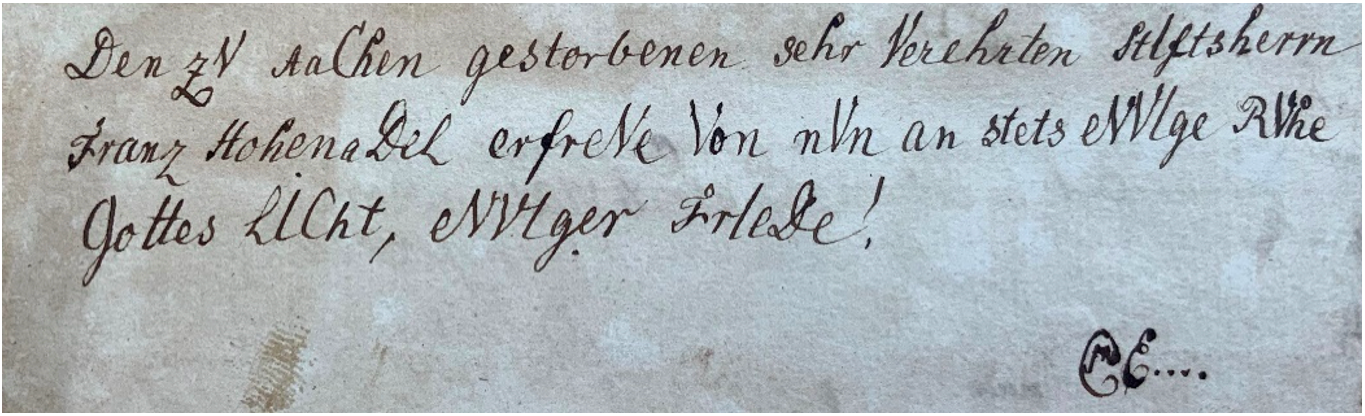 Den zV AaChen gestorbenen sehr Verehrten stIftsherrn
Franz HohenaDeL erfreVe Von nVn an stets eVVIge RVhe
Gottes LICht, eVVIger FrIeDe!